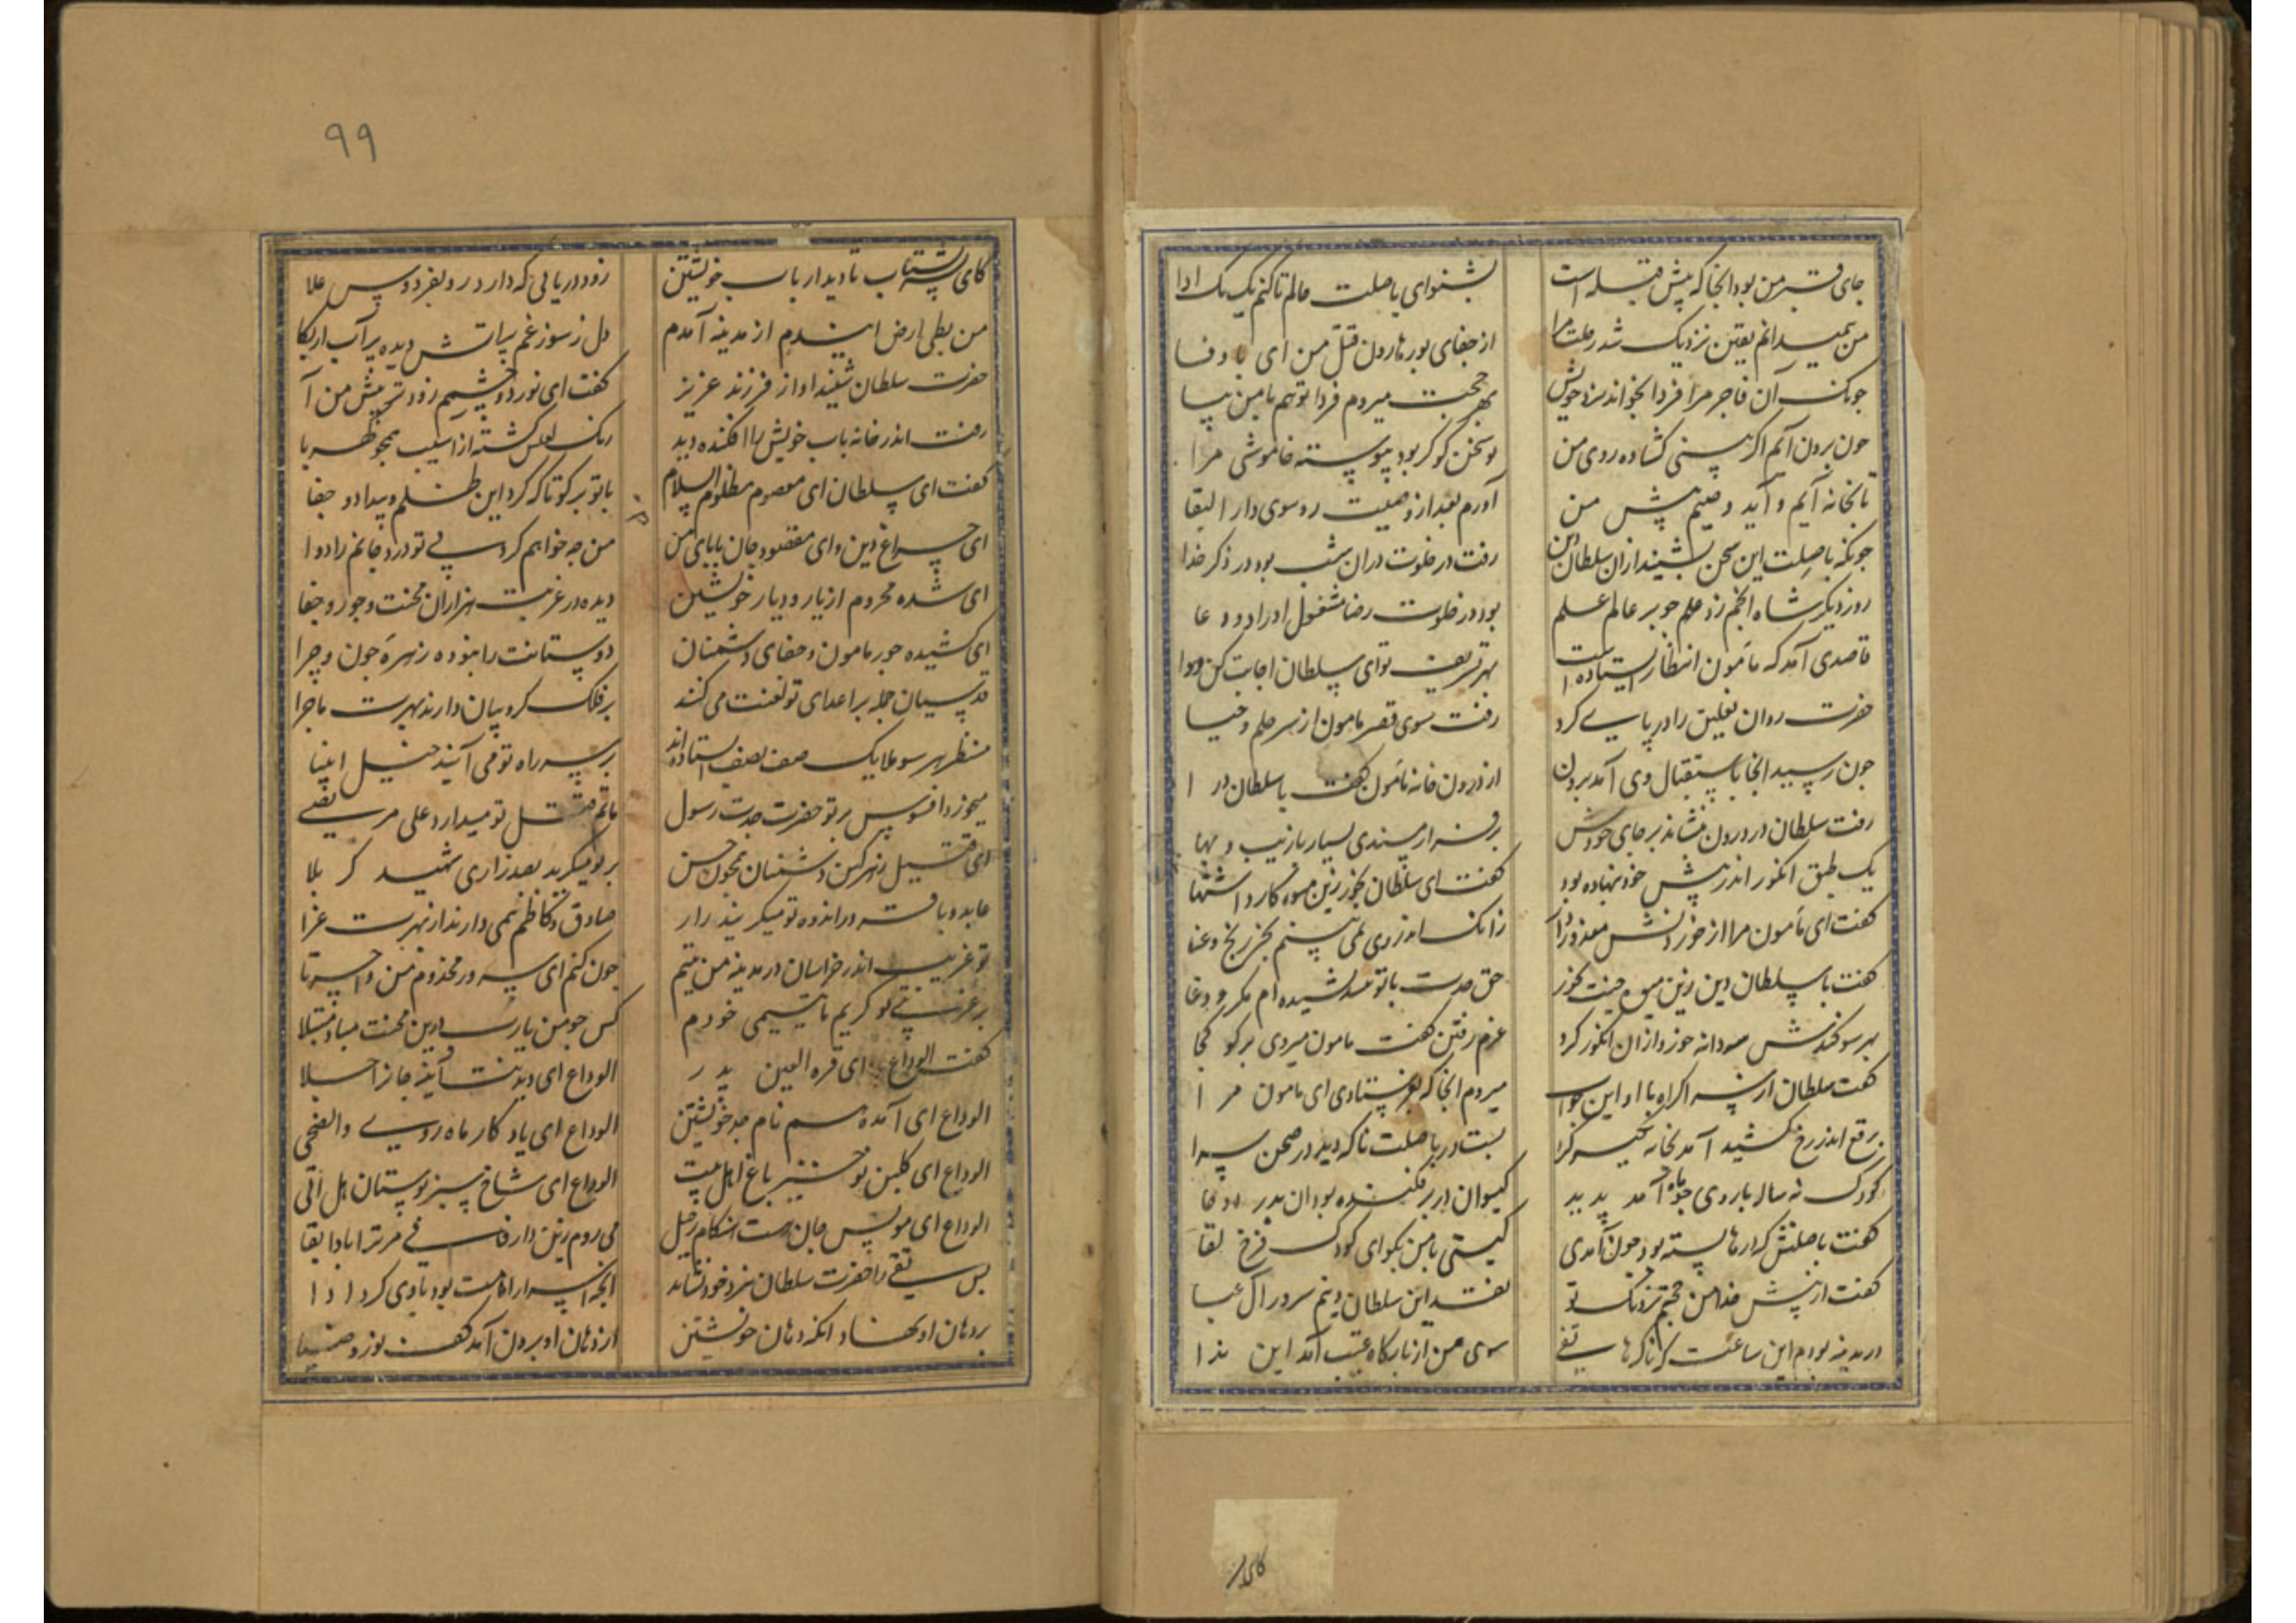 جای قبر من بود آنجا که پیش قبله است بشنو ای باصلت حالم تا کنم یک یک ادا
من همیدانم یقین نزدیک شد رحلت مرا از جفای پور هارون قتل من ای با وفا
چونک آن فاجر مرا فردا بخواند نزد خویش بهر حجت میروم فردا تو هم با من بیا
چون برون آیم اگر بینی گشاده روی من تو سخن گو گر بود پیوسته خاموشی مرا
تا بخانه آیم و آید وصیم پیش من آورم بعد از وصیت رو سوی دار البقا
چونکه باصلت این سخن بشنید از آن سلطان دین رفت در خلوت در آن شب بود در ذکر خدا
روز دیگر شاه انجم زد علم چو بر عالم علم بود در خلوت رضا مشغول اوراد و دعا
قاصدی آمد که مامون انتظار استاده است بهر تشریف تو ای سلطان اجابت کن دوا
حضرت روان نعلین را در پای کرد رفت سوی قصر مامون از سر حلم و حیا
چون رسید آنجا باستقبال وی آمد برون از درون خانه مامون گفت با سلطان در ا
رفت سلطان در درون بنشاند بر جای خودش بر فراز مسندی بسیار با زیب و بها
یک طبق انگور اندر پیش خود بنهاده بود گفت ای سلطان بخور زین میوه کارد اشتها
گفت ای مامون مرا از خوردنش معذور دار زانک اندر وی نمی بینم بجز رنج و عنا
گفت با سلطان دین زین میوه جنت بخور حق جدت با تو نندیشیده ام مکر و دغا
بهر سوگندش سه دانه خورد از آن انگور کرد عزم رفتن گفت مامون میروی بر گو کجا
گفت سلطان از سر اکراه با او این جواب میروم آنجا که بفرستادی ای مامون مرا
برقع اندر رخ کشید آمد بخانه بست در باصلت ناگه دید در صحن سرا
کودک نه ساله با روی چو ماه آمد پدید گیسوان در بر فکنده بود آن بدر
گفت باصلتش که درها بسته بود چون آمدی کیستی با من بگو ای کودک فرخ لقا
گفت از پیش خدا من حجتم نزدیک تو نقد این سلطان دینم سرور آل عبا
در مدینه بودم این ساعت که ناگه هاتفی سوی من از بارگاه غیب آمد این ندا
کای ار
۹۹
کای پسر بشتاب تا دیدار باب خویشتن زود دریابی که دارد رو بفردوس علا
من بطی ارض از مدینه آمدم دل ز سوز غم پر آتش دیده پر آب از بکا
حضرت سلطان شنید آواز فرزند عزیز گفت ای نور دو چشمم زودتر پیش من آ
رفت اندر خانه باب خویش را افکنده دید رنگ لعلش گشته از آسیب همچو کهربا
گفت ای سلطان ای معصوم مظلوم السلام با تو بر گو تا که کرد این ظلم و بیداد و جفا
ای چراغ دین و ای مقصود جان بابای من من چه خواهم کرد بی تو درد جانم را دوا
ای شده محروم از یار و دیار خویشتن دیده در غربت هزاران محنت و جور و جفا
ای کشیده جور مامون و جفای دشمنان دوستانت را نبوده زهره چون و چرا
قدسیان جمله بر اعدای تو لعنت می کنند بر فلک کروبیان دارند بهرت ماجرا
منتظر هر سو ملایک صف بصف استاده اند بر سر راه تو می آیند خیل انبیا
میخورد افسوس بر تو حضرت جدت رسول ماتم قتل تو میدارد علی مرتضی
ای قتیل زهر کین دشمنان همچون حسن بر تو میگرید بصد زاری شهید کربلا
عابد و باقر در اندوه تو میگریند زار صادق و کاظم همی دارند از بهرت عزا
تو غریب اندر خراسان در مدینه من یتیم چون کنم ای سرور مخدوم من واحسرتا
بر غریبی تو گریم یا یتیمی خودم کس چو من یا رب درین محنت مبادا مبتلا
گفت الوداع ای قره العین پدر الوداع ای دیدنت آیینه جان را جلا
الوداع ای آمده هم نام جد خویشتن الوداع ای یادگار ماه روی والضحی
الوداع ای گلبن نوخیز باغ اهل بیت الوداع ای شاخ سبز بوستان هل اتی
الوداع ای مونس جان هست هنگام رحیل می روم زین دار فانی مر ترا بادا بقا
پس تقی را حضرت سلطان نزد خود نشاند آنچه اسرار امامت بود با وی کرد ادا
بر دهان او نهاد آنگه دهان خویشتن از دهان او برون آمد کف نور و ضیا